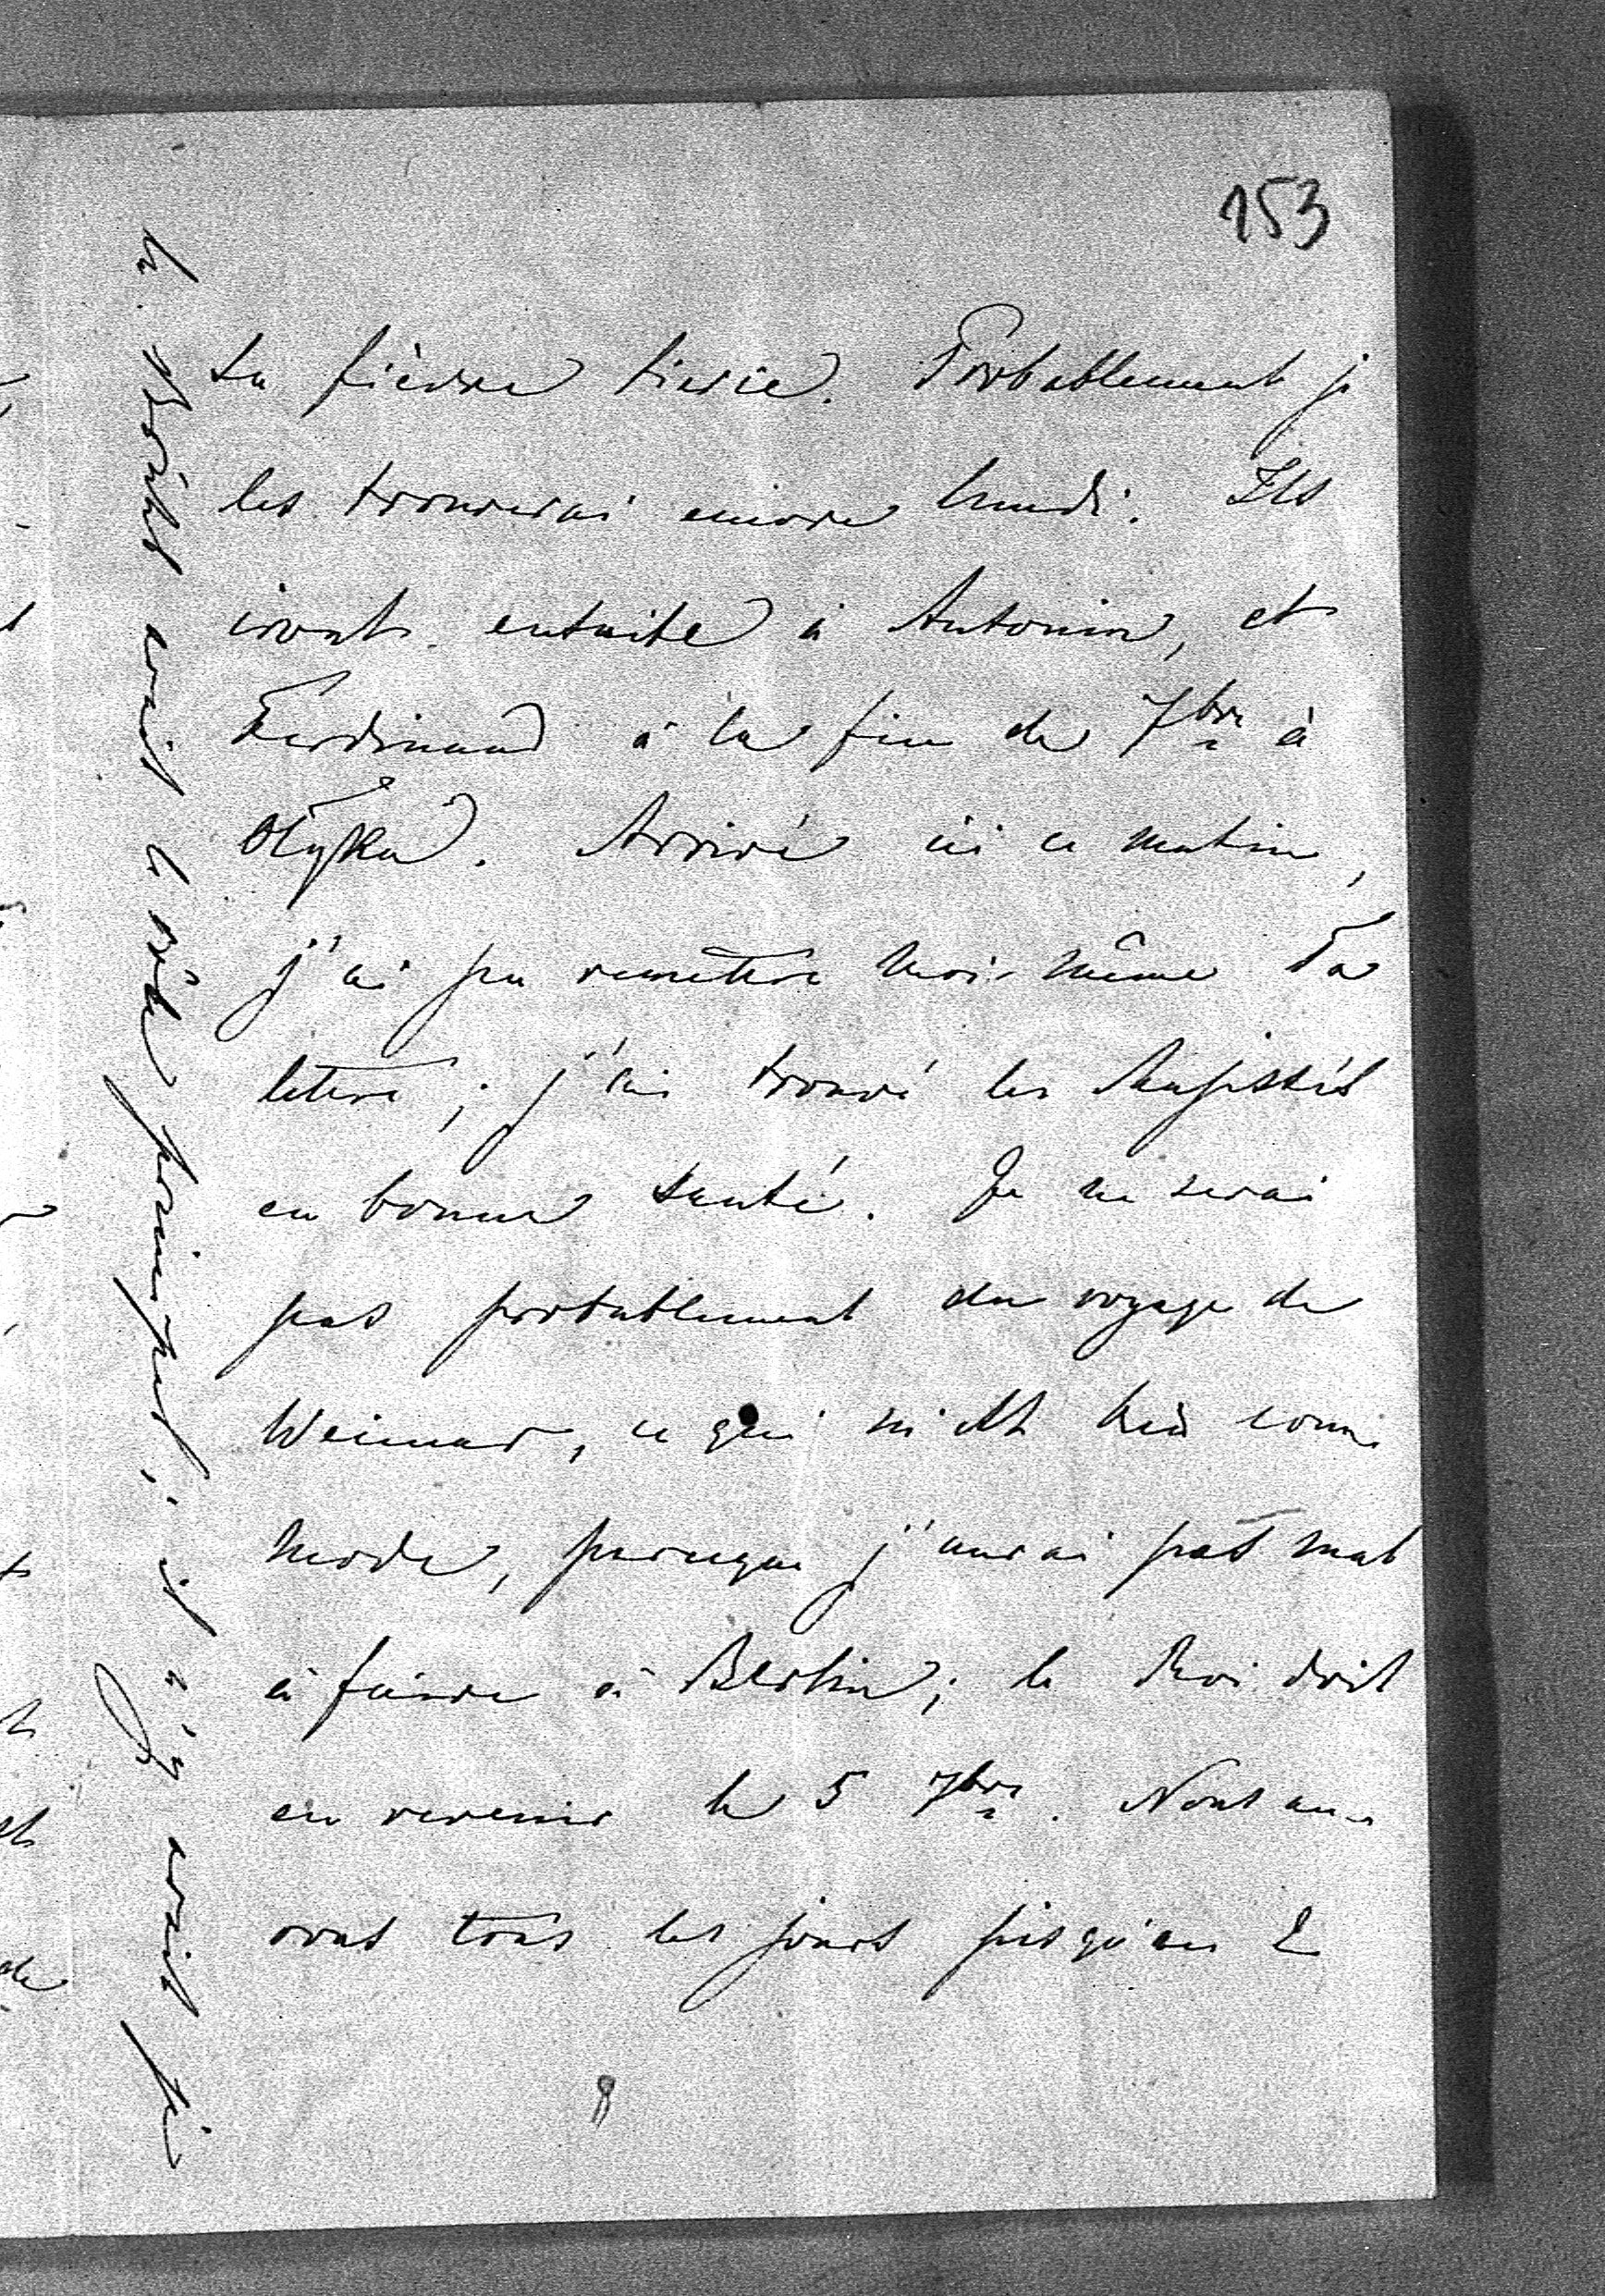 153
sa fièvre tierce. Probablement je
les trouverai encore lundi. Ils
iront ensuite à Antonin, et
Ferdinand à la fin de 7bre à
Olyka. Arrivé ici ce matin,
j'ai pu remettre moi-même Ta
lettre; j'ai trouvé les Majestés
en bonne santé. Je ne serai
pas probablement du voyage de
Weimar, ce qui m'est très com-
mode, parceque j'aurai pas mal
à faire à Berlin; le Roi doit
en revenir le 5 7bre. Nous au-
rons tous les jours jusqu'au 2
avait le rôle principal; il n'y avait